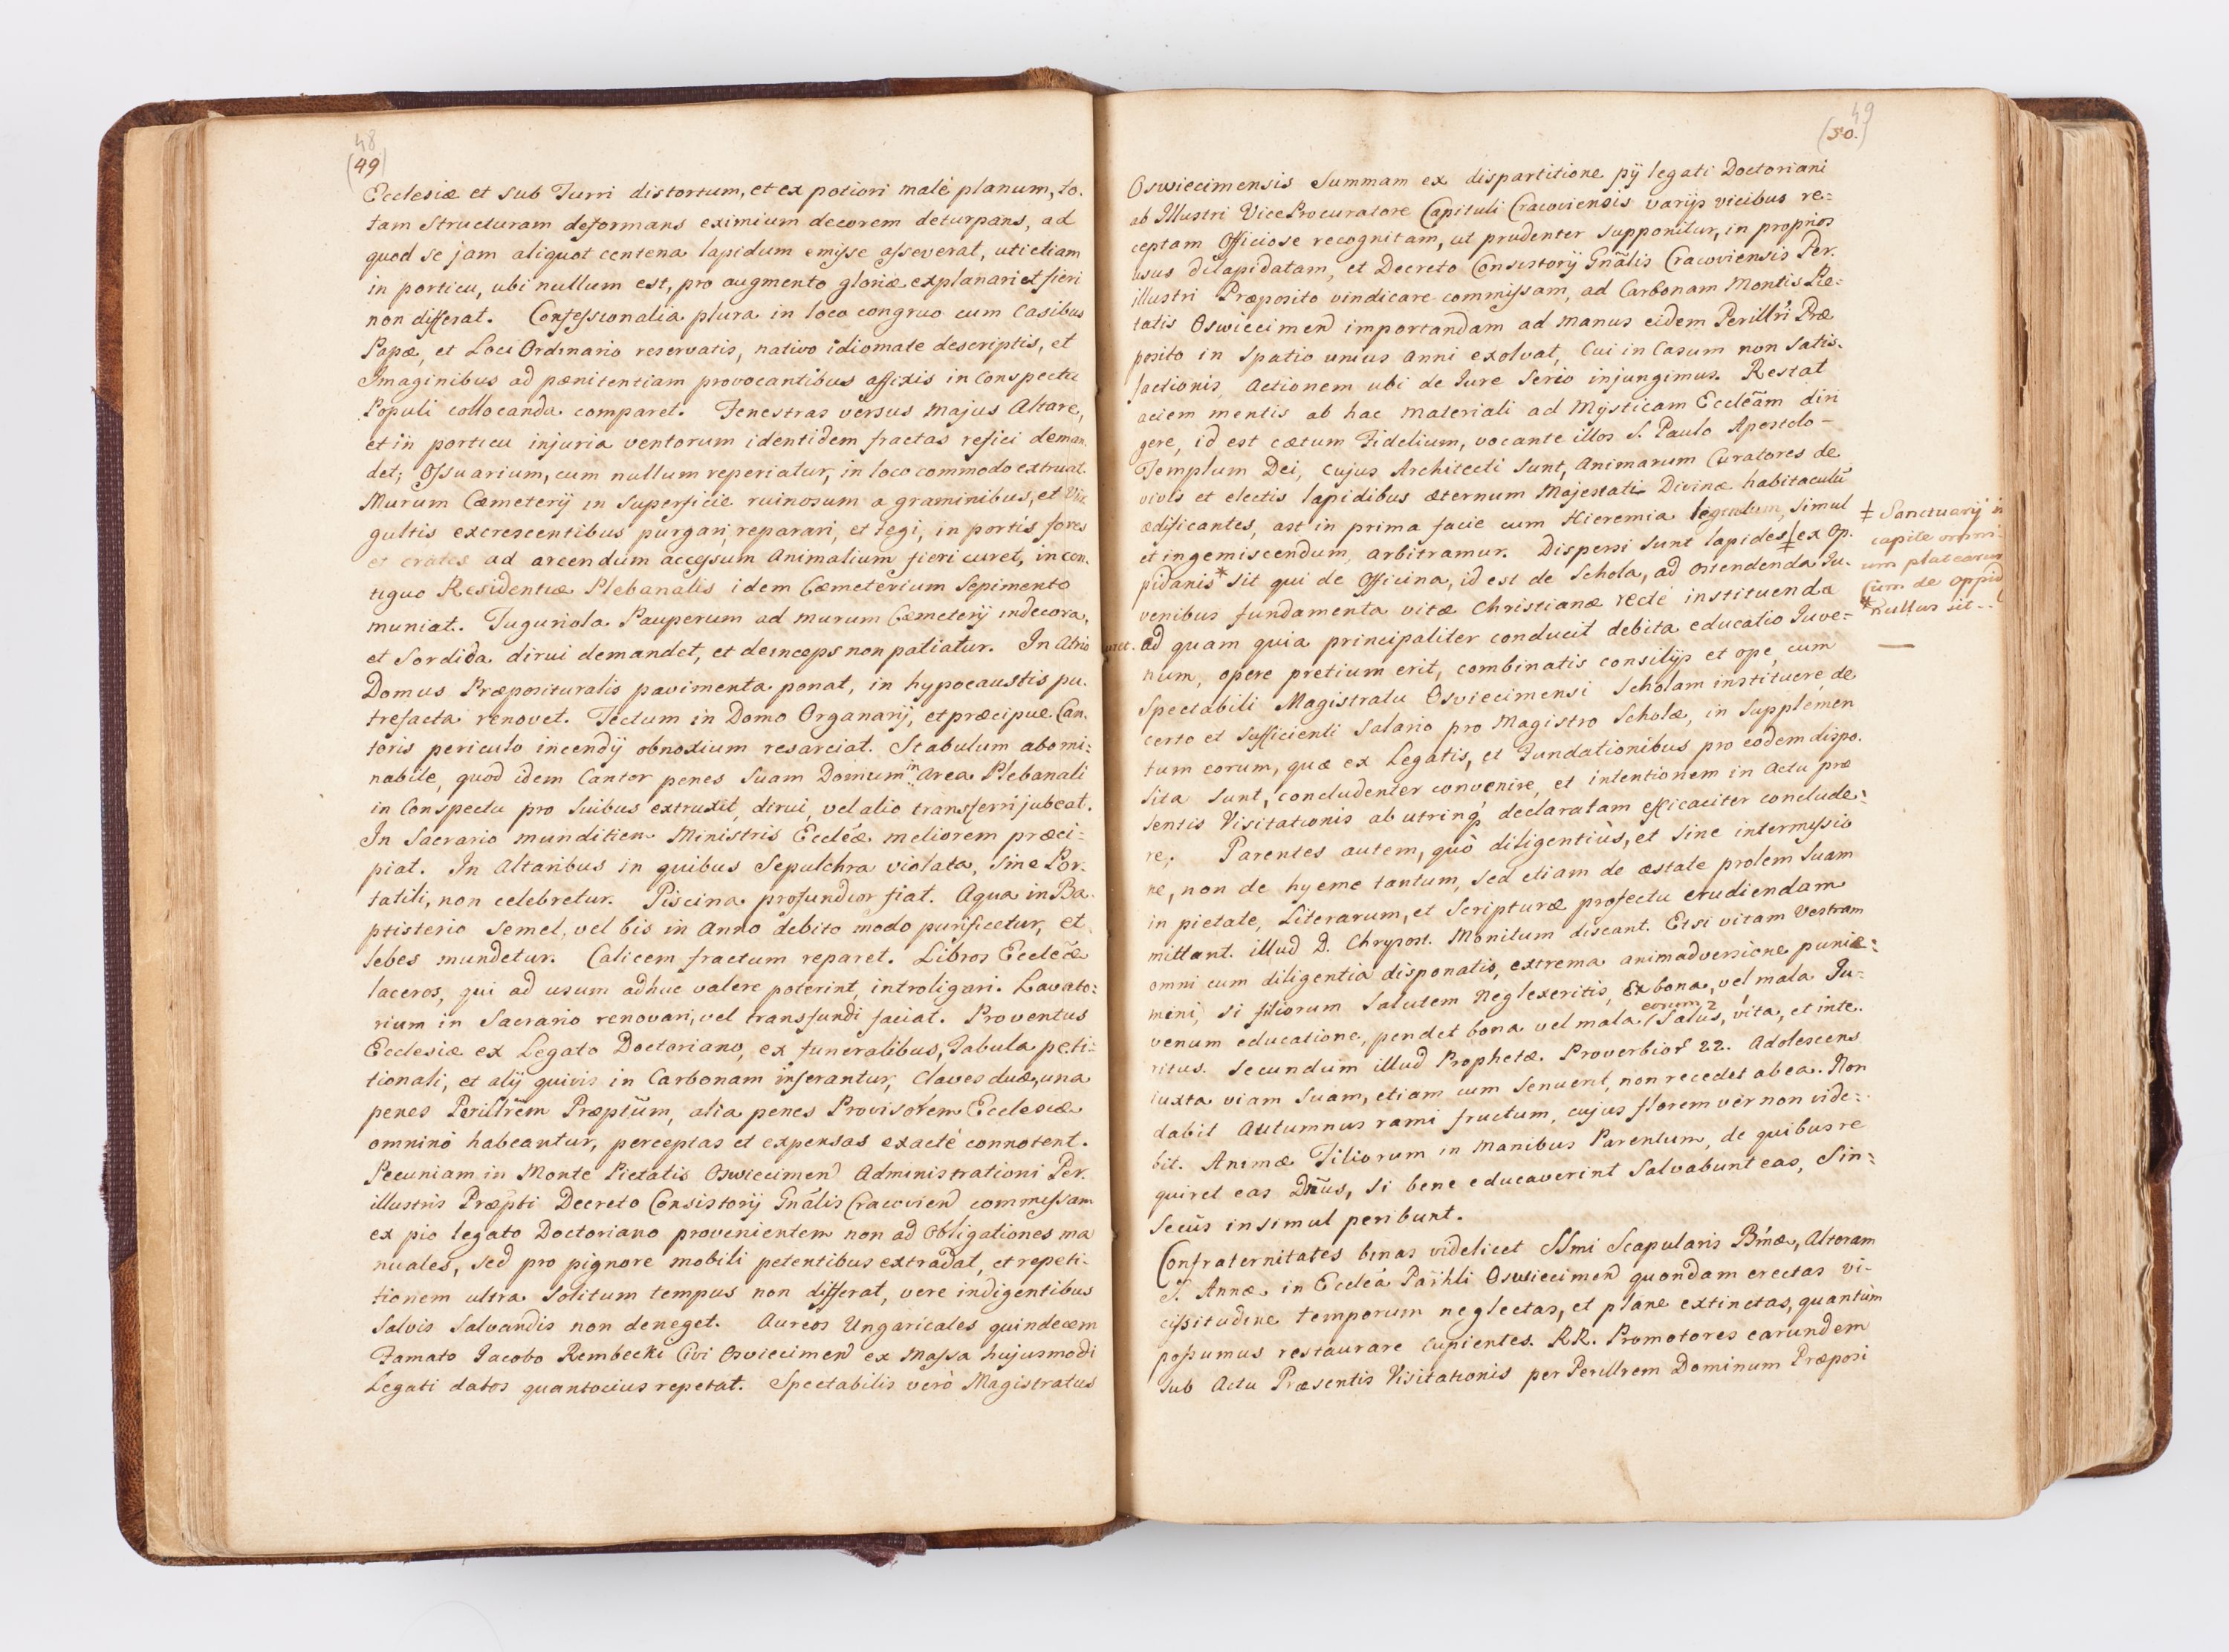 48
(49)
Ecclesiæ et sub Turri distortum, et ex potiori malè planum, to-
tam Structuram deformans eximium decorem deturpans, ad
quod se jam aliquot centena lapidum emisse asseverat, uti etiam
in porticu, ubi nullum est, pro augmento gloriæ explanari et fieri
non differat. Confessionalia plura in loco congruo cum Casibus
Papæ, et Loci Ordinario reservatis, nativo idiomate descriptis, et
Imaginibus ad pænitentiam provocantibus affixis in Conspectu
Populi collocanda comparet. Fenestras versus Majus Altare,
et in porticu injuria ventorum identidem fractas refici deman-
det; Ossuarium, cum nullum reperiatur, in loco commodo extruat.
Murum Cæmeterij in Superficie ruinosum a graminibus, et Vir
gultis excrescentibus purgari, reparari, et tegi, in portis fores
et crates ad arcendum accessum Animalium fieri curet, in con-
tiguo Residentiæ Plebanalis idem Cæmeterium Sepimento
muniat. Tuguriola Pauperum ad murum Cæmeterij indecora,
et Sordida dirui demandet, et deinceps non patiatur. In Atrio
Domus Præposituralis pavimenta ponat, in hypocaustis pu-
trefacta renovet. Tectum in Domo Organarij, et præcipue Can-
toris periculo incendij obnoxium resarciat. Stabulum abomi-
nabile, quod idem Cantor penes Suam Domum in Area Plebanali
in Conspectu pro Suibus extruxit, dirui, vel alio transferri jubeat.
In Sacrario munditiem Ministris Eccleæ meliorem præci-
piat. In Altaribus in quibus Sepulchra violata, Sine Por-
tatili, non celebretur. Piscina profundior fiat. Aqua in Ba-
ptisterio Semel, vel bis in Anno debito modo purificetur, et
lebes mundetur. Calicem fractum reparet. Libros Eccleæ
laceros, qui ad usum adhuc valere poterint, introligari. Lavato-
rium in Sacrario renovari, vel transfundi faciat. Proventus
Ecclesiæ ex Legato Doctoriano, ex funeralibus, Tabula peti-
tionali, et alij quivis in Carbonam inferantur, Claves duæ, una
penes Perillrem Præptum, alia penes Provisorem Ecclesiæ
omninò habeantur, perceptas et expensas exactè connotent.
Pecuniam in Monte Pietatis Oswiecimen Administrationi Per-
illustris Præpti Decreto Consistorij Gnalis Cracovien commissam
ex pio legato Doctoriano provenientem non ad Obligationes ma
nuales, sed pro pignore mobili petentibus extradat, et repeti-
tionem ultra Solitum tempus non differat, vere indigentibus
Salvis Salvandis non deneget. Aureos Ungaricales quindecem
Famato Jacobo Rembecki Civi Osviecimen ex Massa hujusmodi
Legati datos quantocius repetat. Spectabilis verò Magistratus
49
(50.)
Oswiecimensis Summam ex dispartitione pij legati Doctoriani
ab Illustri Vice Procuratore Capituli Cracoviensis varijs vicibus re-
ceptam Officiose recognitam, ut prudenter supponitur, in proprios
usus dilapidatam, et Decreto Consistorij Gnalis Cracoviensis Per-
illustri Præposito vindicare commissam, ad Carbonam Montis Pie-
tatis Oswiecimen importandam ad manus eidem Perillri Præ
posito in Spatio unius Anni exolvat, Cui in Casum non Satis-
factionis, Actionem ubi de Jure Serio injungimus. Restat
aciem mentis ab hac Materiali ad Mysticam Eccleam diri
gere, id est cætum Fidelium, vocante illos S. Paulo Apostolo
Templum Dei, Cujus Architecti Sunt, Animarum Curatores de
vivis et electis lapidibus æternum Majestati Divinæ habitaculu
ædificantes, ast in prima facie cum Hieremia legendum, Simul
et ingemiscendum, arbitramur. Dispersi Sunt lapides ‡ ex Op-
pidanis * Sit qui de Officina, id est de Schola, ad ostendenda Ju-
venibus fundamenta vitæ Christianæ rectè instituenda
ad quam quia principaliter conducit debita educatio Juve-
num, opere pretium erit, combinatis consilijs et ope, cum
Spectabili Magistratu Osviecimensi Scholam instituere, de
certo et Sufficienti Salario pro Magistro Scholæ, in Supplemen
tum eorum, quæ ex Legatis, et Fundationibus pro eodem dispo-
sita Sunt, concludenter convenire, et intentionem in Actu præ
sentis Visitationis ab utrinq declaratam efficaciter conclude-
re. Parentes autem, quò diligentiùs, et Sine intermissio
ne, non de hyeme tantum, Sed etiam de æstate prolem Suam
in pietate, Literarum, et Scripturæ profectu erudiendam
mittant. illud D. Chrysost. Monitum discant. Etsi vitam Vestram
omni cum diligentia disponatis, extrema animadversione punie-
mini, Si filiorum Salutem Neglexeritis, Ex bona, vel mala Ju-
venum educatione, pendet bona vel mala eorum Salus, vita, et inte-
ritus. Secundum illud Prophetæ. Proverbior 22. Adolescens
juxta viam Suam, etiam cum Senuerit, non recedet ab ea. Non
dabit Autumnus rami fructum, cujus florem vèr non vide-
bit. Animæ Filiorum in Manibus Parentum, de quibus re
quiret eas Dnus, Si bene educaverint Salvabunt eas, Sin-
Secùs insimul peribunt.
Confraternitates binas videlicet SSmi Scapularis Bmæ, Alteram
S. Annæ in Ecclea Parhli Oswiecimen quondam erectas vi-
cissitudine temporum neglectas, et plane extinctas, quantum
possumus restaurare Cupientes. RR. Promotores earundem
Sub Actu Præsentis Visitationis per Perillrem Dominum Præposi
‡ Sanctuarij in
capite omni-
um platearum
Cum de oppid
* nullus sit